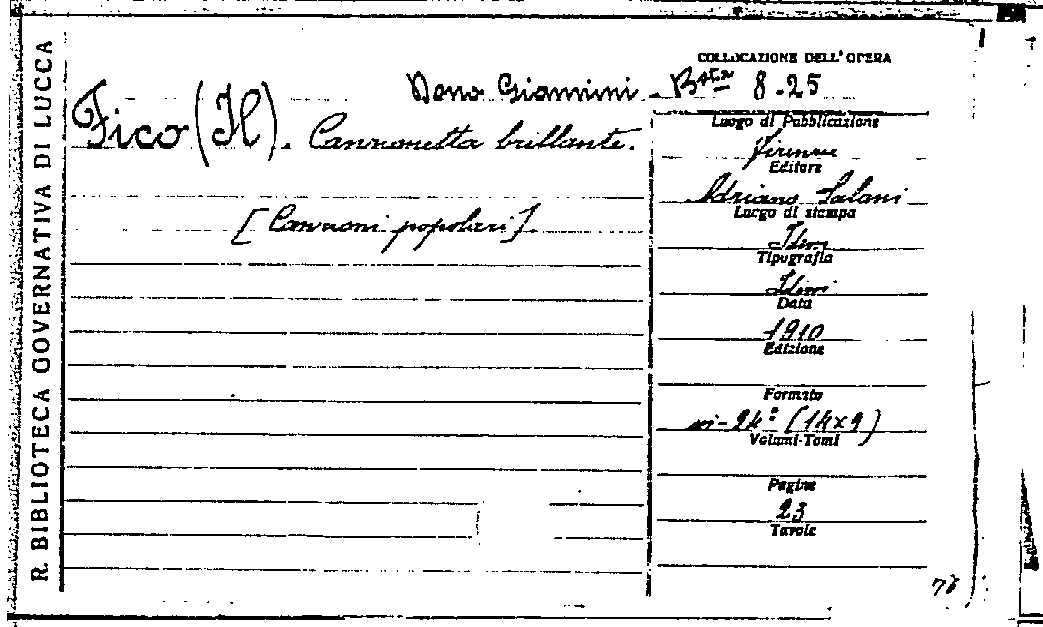 R. BIBLIOTECA GOVERNATIVA DI LUCCA
COLLOCAZIONE DELL' OPERA
Dono Giannini - Bsta 8.25
Fico (Il). Canzonetta brillante.
[Canzoni popolari].
Luogo di Pubblicazione
Firenze
Editore
Adriano Salani
Luogo di stampa
Idem
Tipografia
Idem
Data
1910
Edizione
Formato
in-24° (14x9)
Volumi-Tomi
Pagine
23
Tavole